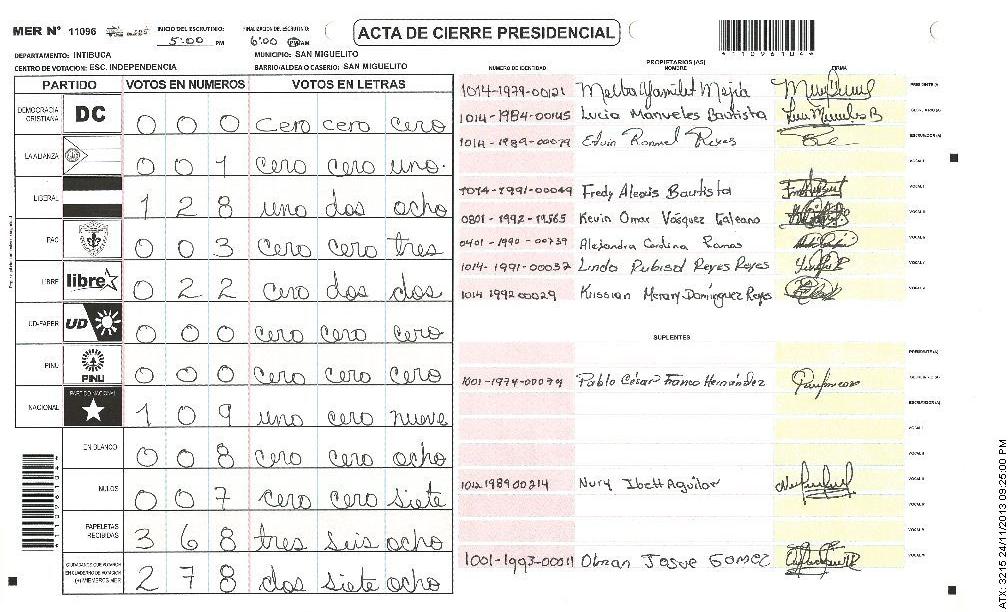 MER Nº 11096 INICIO DEL ESCRUTINIO: 5:00 PM FINALIZACION DEL ESCRUTINIO: 6:00 PM AM
ACTA DE CIERRE PRESIDENCIAL
11096104
DEPARTAMENTO: INTIBUCA MUNICIPIO: SAN MIGUELITO
CENTRO DE VOTACION: ESC. INDEPENDENCIA BARRIO/ALDEA O CASERIO: SAN MIGUELITO
PARTIDO VOTOS EN NUMEROS VOTOS EN LETRAS
DEMOCRACIA CRISTIANA DC 0 0 0 cero cero cero
LA ALIANZA 0 0 1 cero cero uno.
LIBERAL 1 2 8 uno dos ocho
PAC 0 0 3 cero cero tres
LIBRE libre 0 2 2 cero dos dos
UD-FAPER UD 0 0 0 cero cero cero
PINU PINU 0 0 0 cero cero cero
NACIONAL PARTIDO NACIONAL 1 0 9 uno cero nueve
EN BLANCO 0 0 8 cero cero ocho
NULOS 0 0 7 cero cero siete
PAPELETAS RECIBIDAS 3 6 8 tres seis ocho
CIUDADANOS QUE VOTARON EN CUADERNO DE VOTACION (+) MIEMBROS MER 2 7 8 dos siete ocho
PROPIETARIOS (AS)
NUMERO DE IDENTIDAD NOMBRE FIRMA
1014-1979-00121 Melba Yamilet Mejia PRESIDENTE(A)
1014-1984-00145 Lucia Manueles Bautista SECRETARIO(A)
1014-1989-00079 Edvin Rommel Reyes ESCRUTADOR(A)
VOCAL I
1014-1991-00049 Fredy Alexis Bautista VOCAL II
0801-1992-19565 Kevin Omar Vásquez Galeano VOCAL III
0401-1990-00739 Alejandra Carolina Ramos
1014-1991-00037 Linda Rubisol Reyes Reyes VOCAL V
1014 1992 00029 Kissian Merary Domínguez Reyes
SUPLENTES
PRESIDENTE(A)
1001-1974-00079 Pablo César Franco Hernández SECRETARIO(A)
ESCRUTADOR(A)
VOCAL I
VOCAL II
1012 1989 00214 Nury Ibett Aguilar VOCAL III
VOCAL IV
VOCAL V
1001-1993-00011 Olman Josue Gomez VOCAL VI
ATX: 3215 24/11/2013 09:25:00 PM